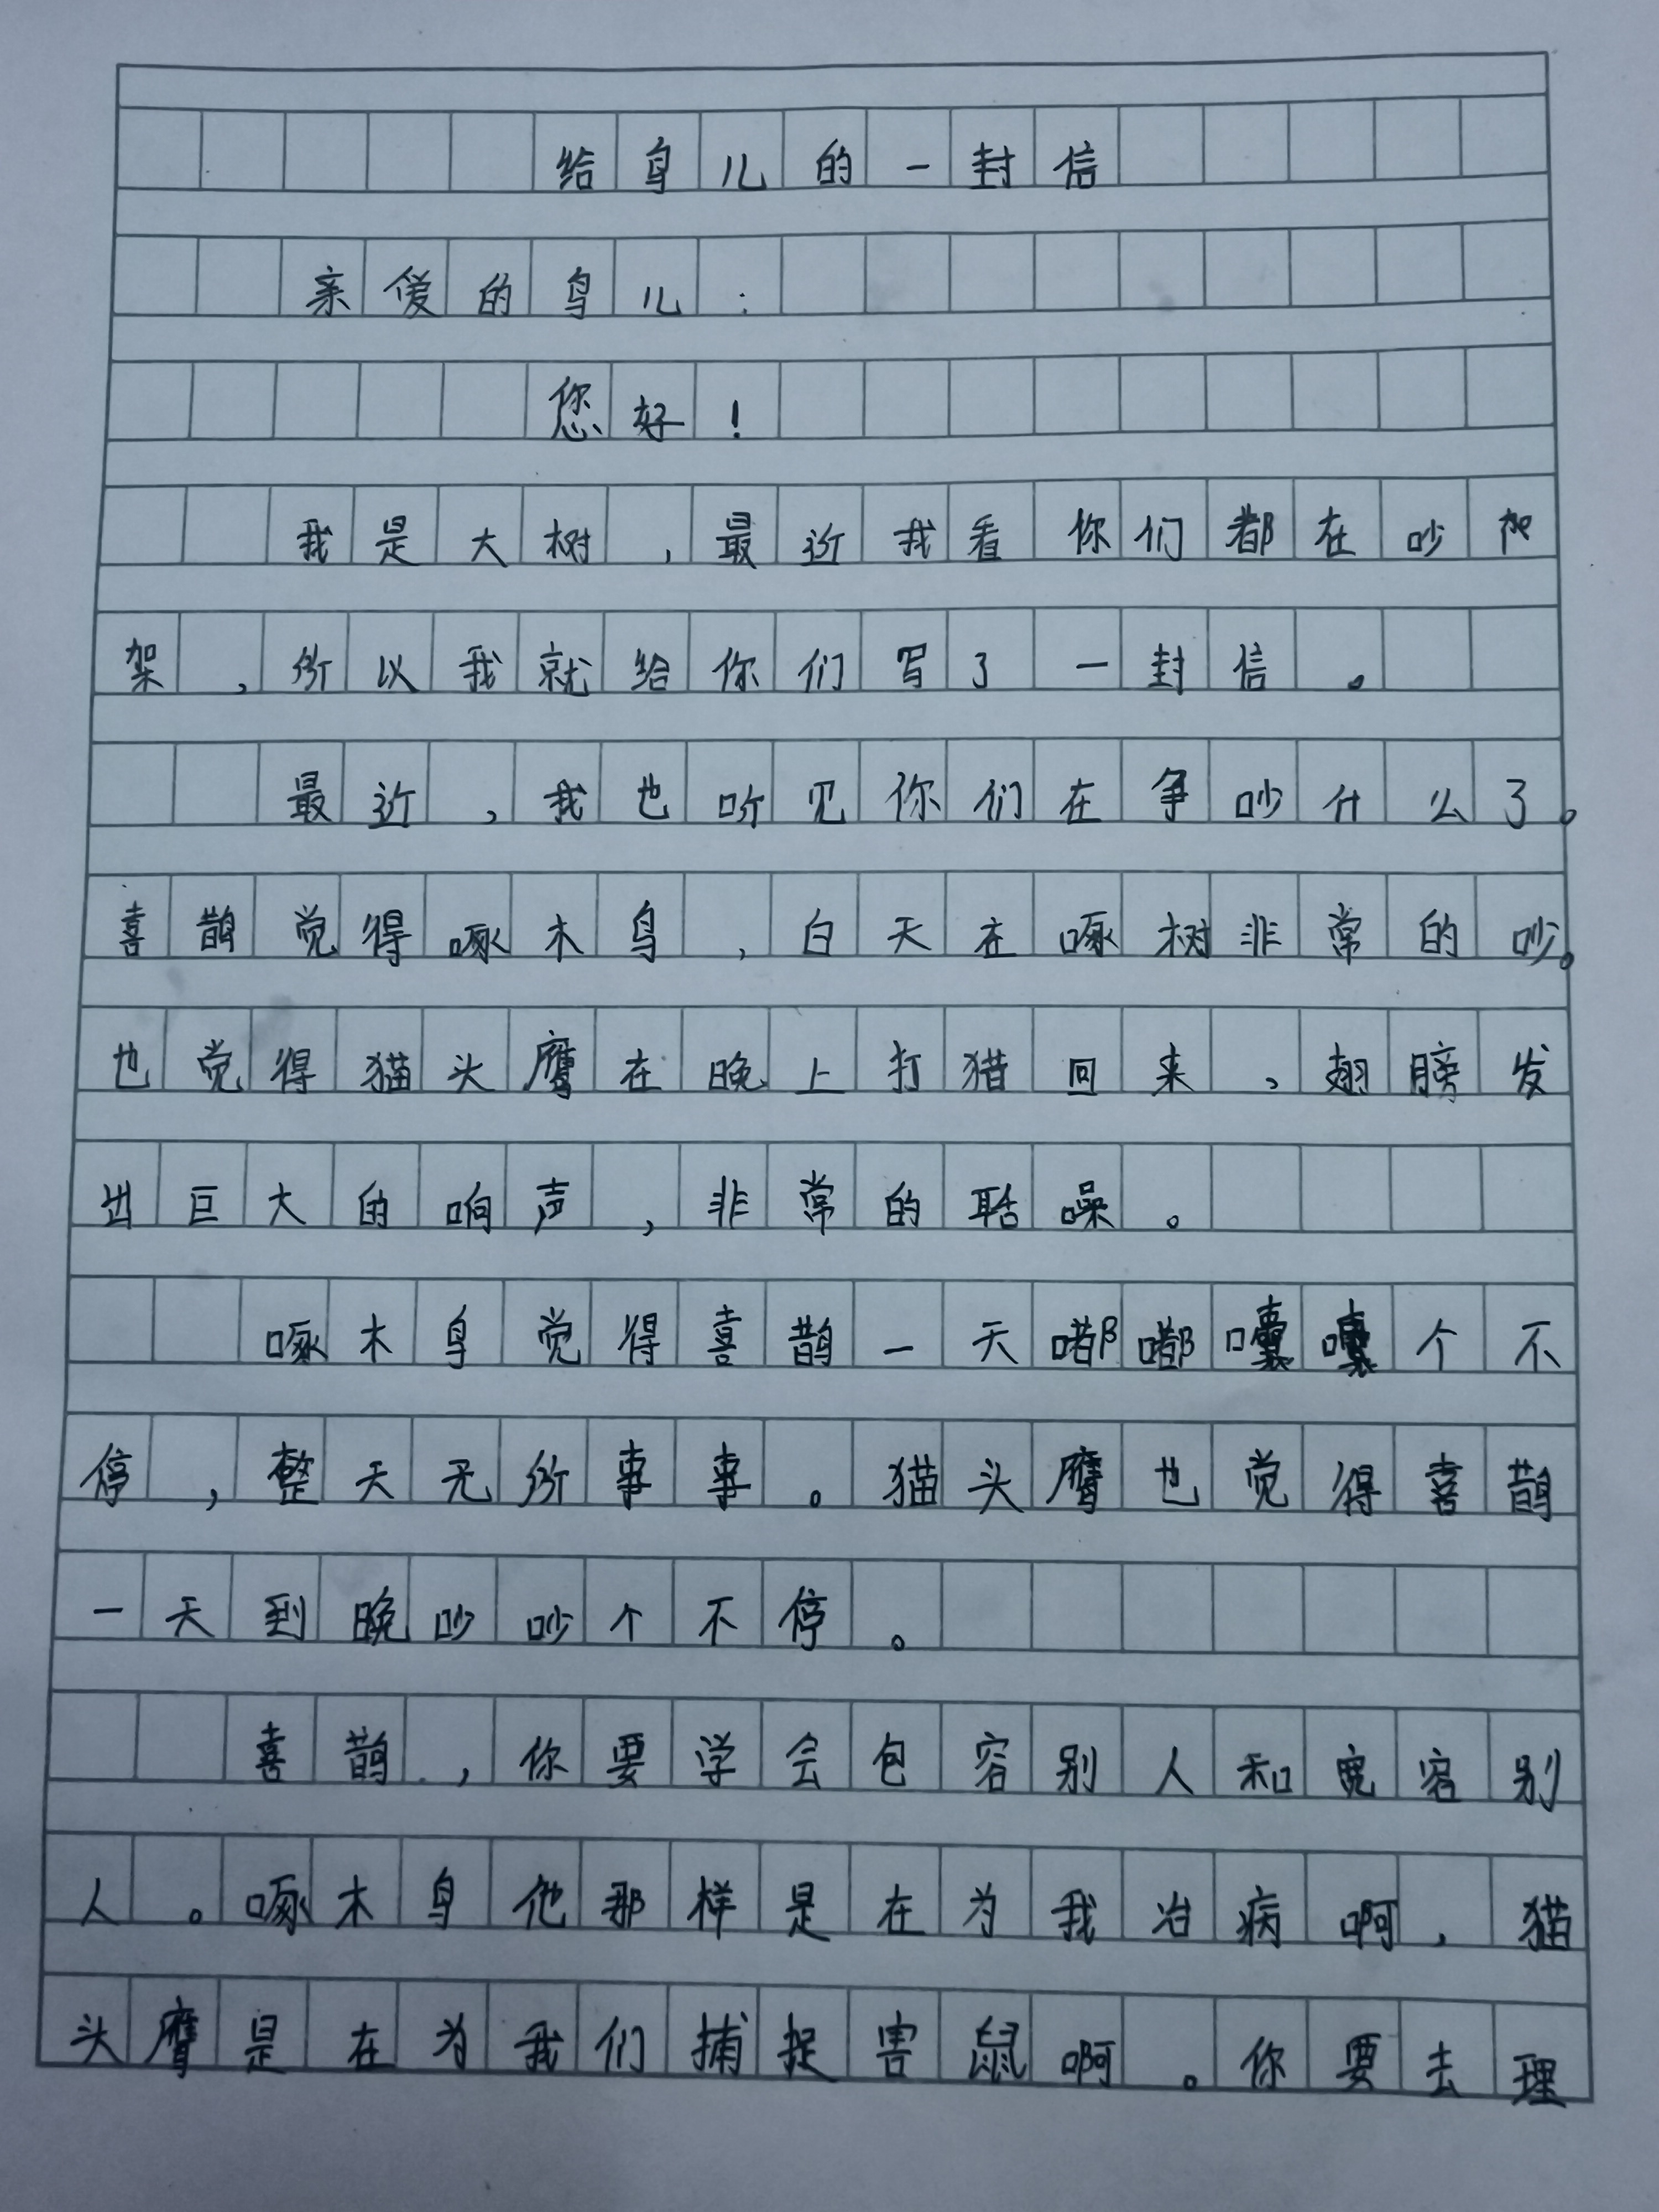 给鸟儿的一封信
亲爱的鸟儿：
您好！
我是大树，最近我看你们都在吵
架，所以我就给你们写了一封信。
最近，我也听见你们在争吵什么了。
喜鹊觉得啄木鸟，白天在啄树非常的吵。
也觉得猫头鹰在晚上打猎回来，翅膀发
出巨大的响声，非常的聒噪。
啄木鸟觉得喜鹊一天嘟嘟囔囔个不
停，整天无所事事。猫头鹰也觉得喜鹊
一天到晚吵吵个不停。
喜鹊，你要学会包容别人和宽容别
人。啄木鸟他那样是在为我治病啊，猫
头鹰是在为我们捕捉害鼠啊。你要去理